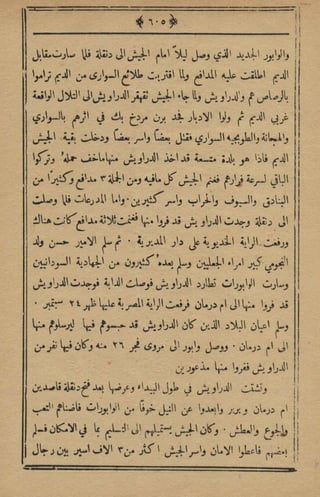 ﴿ ٦٠٥ ﴾
والوابور الجديد الذي وصل ليلاً امام الجيش الى دنقلة فلما سارت مقابل
الديم اطلقت عليه المدافع ولما اقتربت طلائع السواري من الديم تراموا
بالرصاص هم والدراويش ولما جاء الجيش تقهقر الدراويش الى التلال الواقعة
غربي الديم ثم ولوا الادبار فجد برن مردخ بك في اثرهم بالسواري
والهجانة والطوبجيه السواري فقتل بعضاً واسر بعضاً ودخلت بقية الجيش
الديم فاذا هو بلدة متسعة قد اخذ الدراويش منها ماخف حمله وتركوا
الباقي لسرعة فرارهم فغنم الجيش كل مافيه ومن الجملة ٣ مدافع وكثيراً من
البنادق والسيوف والحراب واسر كثيرين. واما المدرعات فلما وصلت
الى دنقلة وجدت الدراويش قد فروا منها فغنمت ثلاثة مدافع كانت هناك
ورفعت الراية الخديوية على دار المديرية. ثم سلم الامير حسن ولد
النجومي كبير امراء الجعليين وسلم بعده كثيرون من الجهادية السودانيين
وسارت الوابورات تطارد الدراويش فوصلت الدابة فوجدت الدراويش
قد فروا منها الى ام درمان فرفعت الراية المصرية عليها ظهر ٢٤ سبتمبر.
وسلم اعيان البلاد الذين كان الدراويش قد حبسوهم فيها ليرسلوهم منها
الى ام درمان. ووصل وابور الى مروى فجر ٢٦ منه وكان فيها نفر من
الدراويش ففروا منها مذعورين
وتشتت الدراويش في طول البيداء وعرضها بعد فتح دنقلة قاصدين
ام درمان و بربر وابعدوا عن النيل خوفاً من الوابورات فاضناهم التعب
والجوع والعطش. وكان الجيش يستميلهم الى التسليم بما في الامكان فسلم
بعضهم فاعطوا الامان واسر الجيش اكثر من ٣ الاف اسير بين رجال